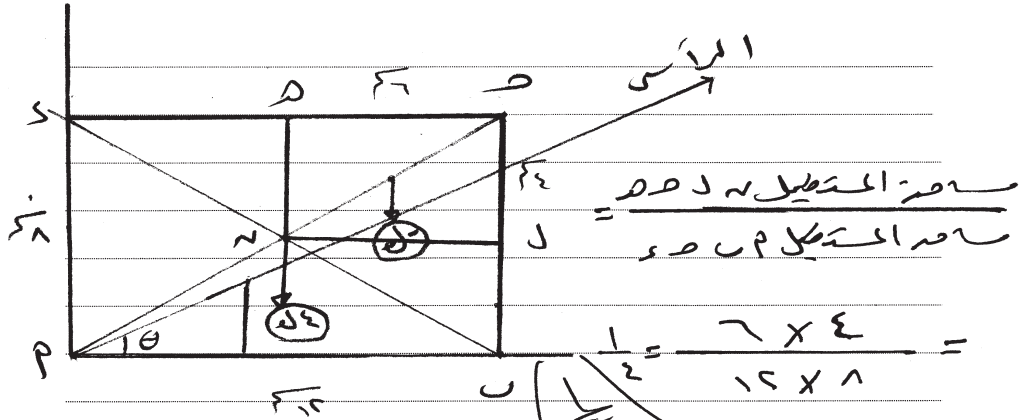 الرأسى
هـ ٦سم حـ
ء
٤سم
٨سم
ن ل
ك-
٤ك
θ
P ب
١٢سم
= مساحة المستطيل ن ل حـ هـ / مساحة المستطيل P ب حـ ء
= ٤ × ٦ / ٨ × ١٢ = ١ / ٤